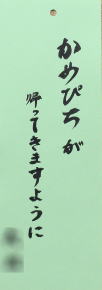 かめぴちが
帰ってきますように